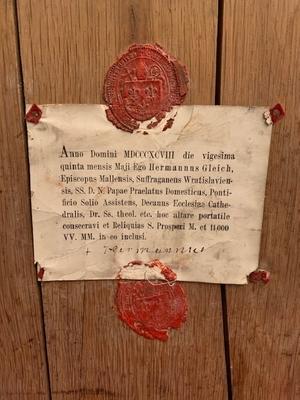 Anno Domini MDCCCXCVIII die vigesima
quinta mensis Maji Ego Hermannus Gleich,
Episcopus Mallensis, Suffraganeus Wratislavien-
sis, SS. D. N. Papae Praelatus Domesticus, Ponti-
ficio Solio Assistens, Decanus Ecclesiae Cathe-
dralis, Dr. Ss. theol. etc. hoc altare portatile
consecravi et Reliquias S. Prosperi M. et 11000
VV. MM. in eo inclusi.
† Hermannus